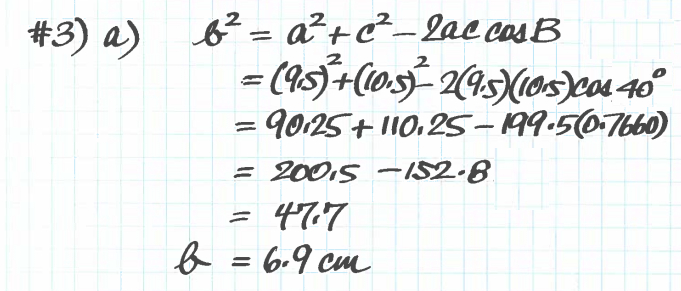 #3) a) b² = a² + c² - 2ac cos B
= (9.5)² + (10.5)² - 2(9.5)(10.5)cos 40°
= 90.25 + 110.25 - 199.5(0.7660)
= 200.5 - 152.8
= 47.7
b = 6.9 cm